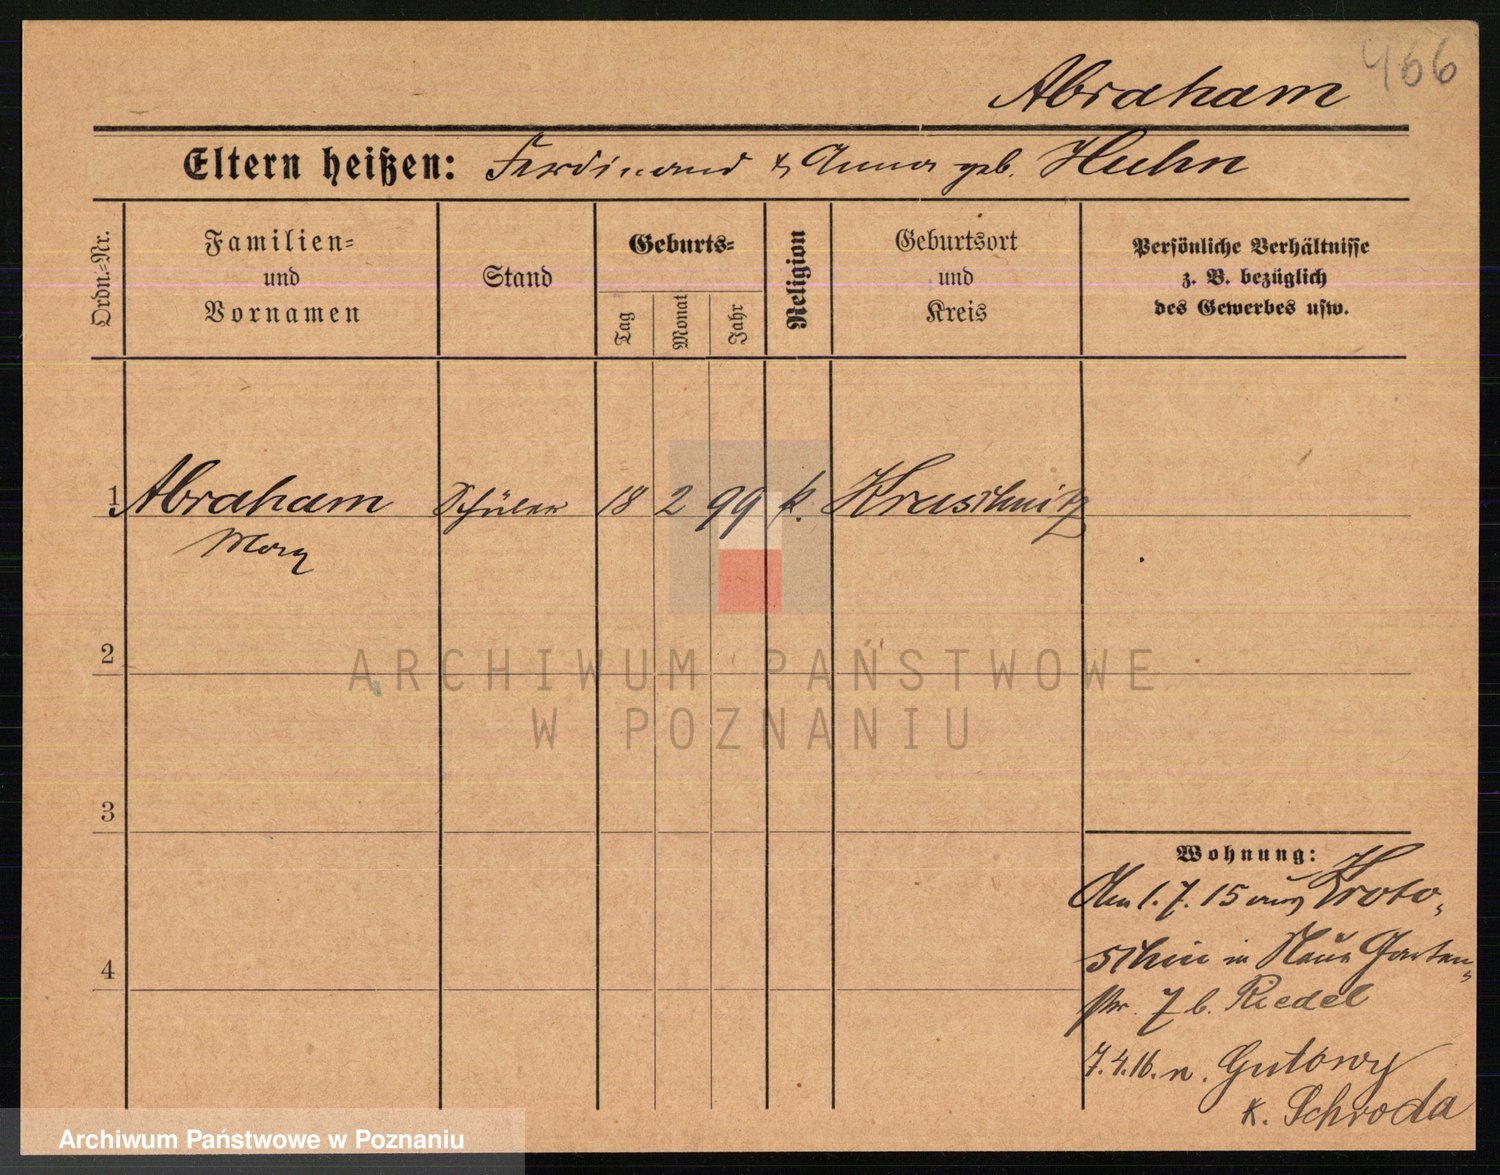 466
Abraham
Eltern heißen: Ferdinand & Anna geb. Huhn
Ordn.-Nr.
Familien-
und
Vornamen
Stand
Geburts-
Tag
Monat
Jahr
Religion
Geburtsort
und
Kreis
Persönliche Verhältnisse
z. B. bezüglich
des Gewerbes usw.
1 Abraham Schüler 18 2 99 k. Kraschnitz
2
3
4
Wohnung:
Am 1. 7. 15 aus Kroto-
schin in Neue Garten-
str. 7 b. Riedel
7. 4. 16. n. Gutowy
K. Schroda
ARCHIWUM PAŃSTWOWE
W POZNANIU
Archiwum Państwowe w Poznaniu